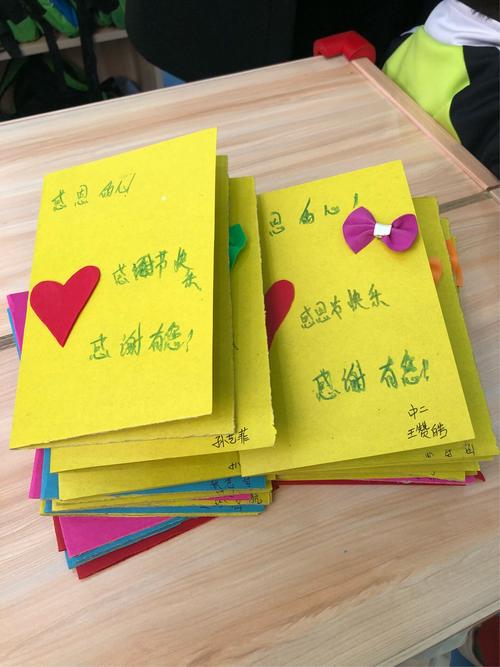 感恩的心!
感谢节快
乐
感谢有您!
孙艺菲
恩的心!
感恩节快乐
感谢有您!
中二
王赞皓